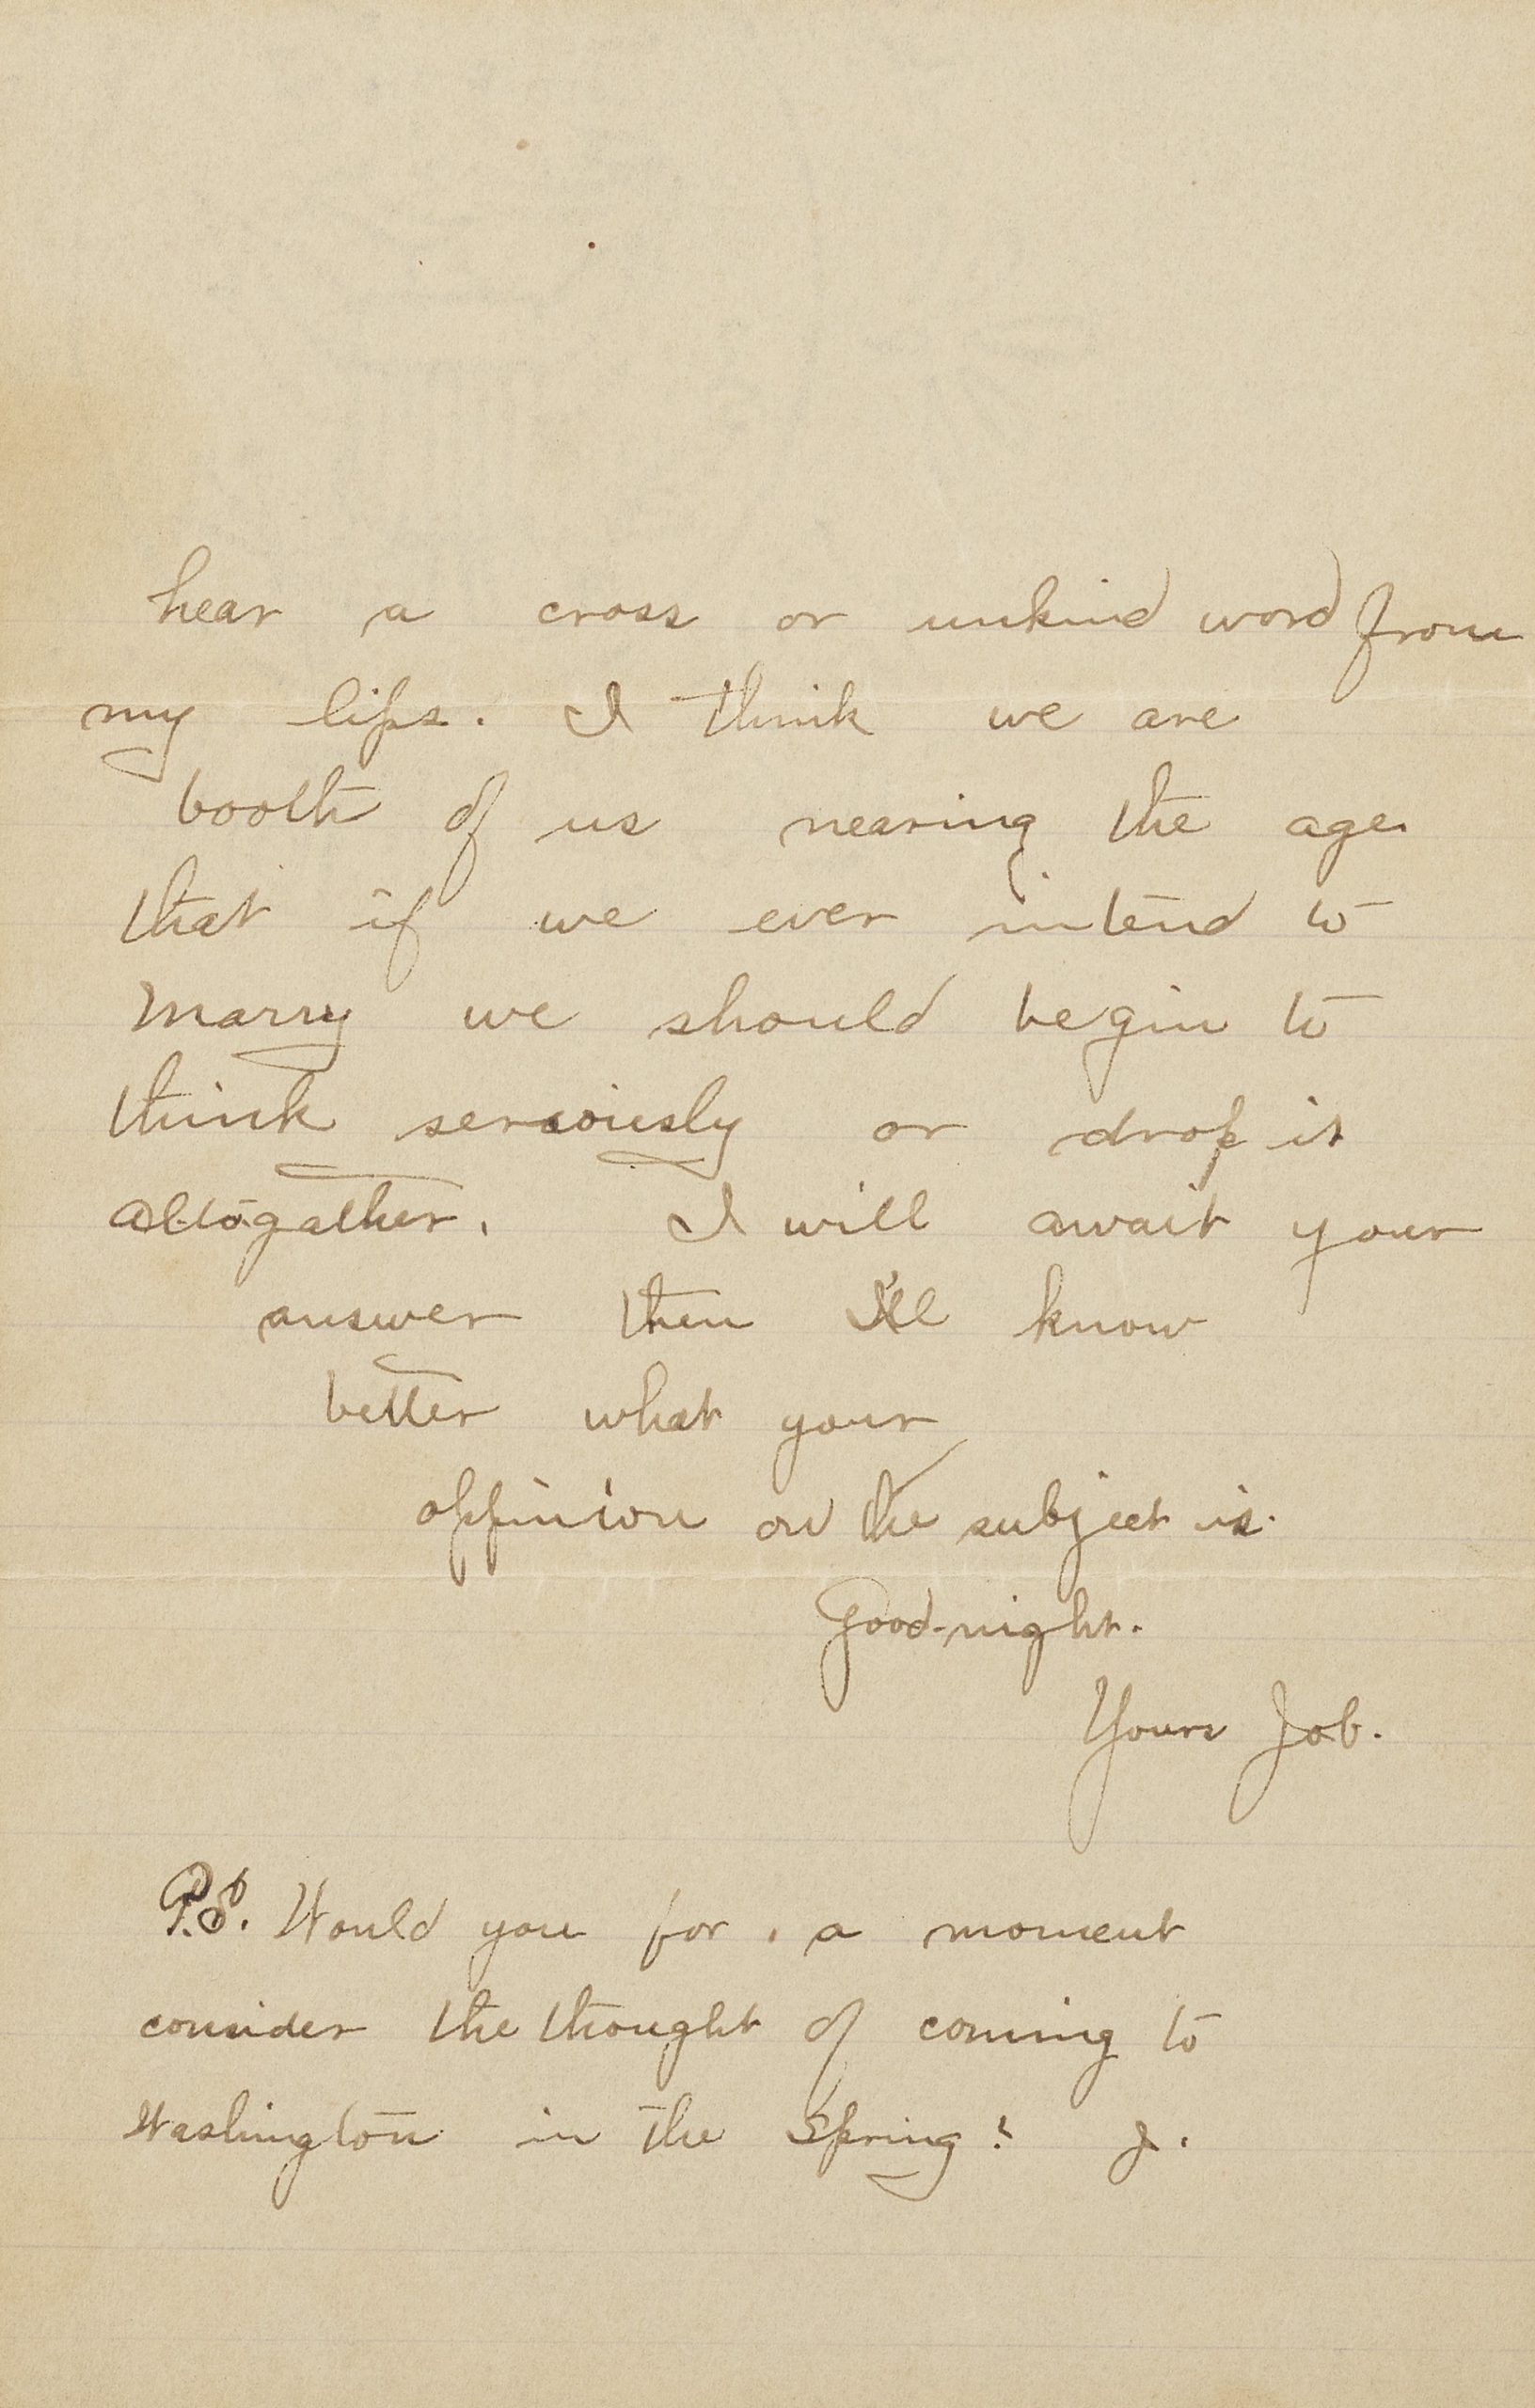 hear a cross or unkind word from
my lips. I think we are
booth of us nearing the age
that if we ever intend to
marry we should begin to
think seriously or drop it
altogather. I will await your
answer then I'll know
better what your
oppinion on the subject is.
Good-night.
Yours Job.
P.S. Would you for a moment
consider the thought of coming to
Washington in the Spring? J.